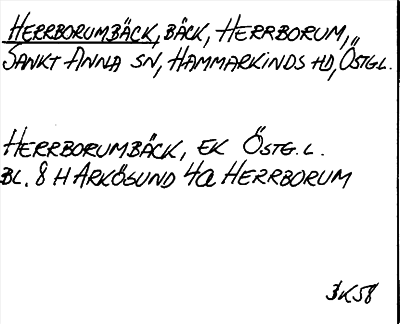 HERRBORUMBÄCK, BÄCK, HERRBORUM,
SANKT ANNA SN, HAMMARKINDS HD, ÖSTGL.
HERRBORUMBÄCK, EK ÖSTG.L.
BL. 8 H ARKÖSUND 4a HERRBORUM